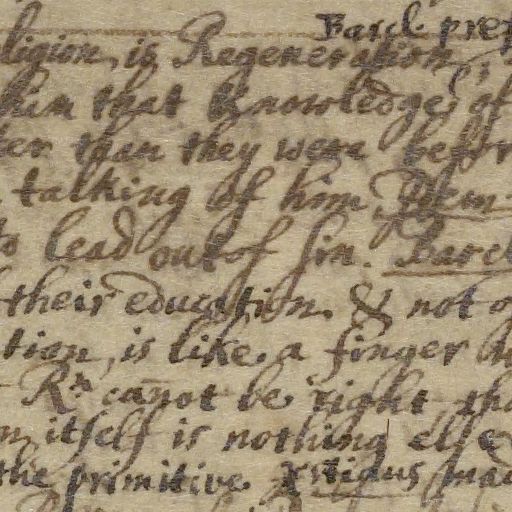 Barcl. pref
ligion, is Regeneration,
him that Knowledge of
ter than they were befor
talking of him Idem
to lead out of sin. Barcl
their education. & not o
tion, is like a finger
Rn cannot be right, tha
n itself is nothing else
the primitive Xstians mad